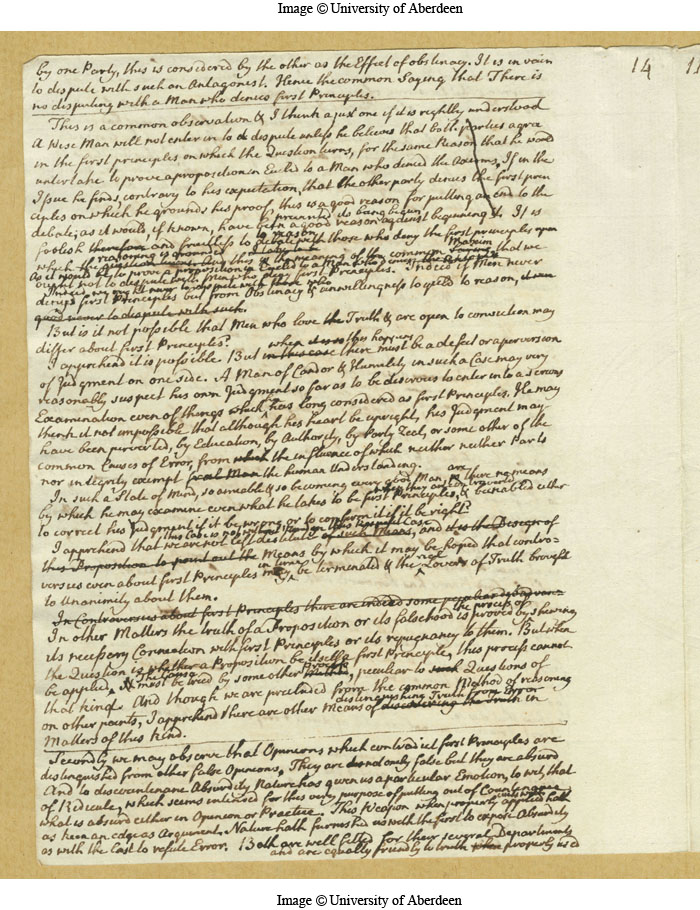 Image © University of Aberdeen
14
by one Party, this is considered by the other as the Effect of obstinacy. It is in vain
to dispute with such an Antagonist. Hence the common Saying that There is
no disputing with a Man who denies first Principles.
This is a common observation & I think a just one if it is rightly understood
A Wise Man will not enter in to a dispute unless he believes that both parties agree
in the first principles on which the Question turns, for the same Reason that he would
undertake to prove a proposition in Euclid to a Man who denied the Axioms, If in the
Issue he finds, contrary to his expectation, that the other party denies the first prin
ciples on which he grounds his proof, this is a good reason for putting an end to the
debate; as it would, if known, have been a good reason against beginning it. It is
foolish therefore and fruitless to debate with those who deny the first principles upon
which the question turns
ought not to dispute with Men who deny first Principles. Indeed if Men never
denied first Principles but from Obstinacy & unwillingness to yield to reason, it were
good never to dispute with such.
But is it not possible that Men who love the Truth & are open to conviction may
differ about first Principles?
when it is so this happens
I apprehend it is possible. But in this case there must be a defect or a perversion
of Judgment on one side. A Man of Candor & Humility in such a Case may very
reasonably suspect his own Judgment so far as to be desirous to enter into a serious
Examination even of things which he has long considered as first Principles. He may
think it not impossible that although his heart be upright, his Judgment may
have been perverted, by Education, by Authority, by Party Zeal, or some other of the
common Causes of Error, from which the influence of which neither neither Parts
nor integrity exempt the human Understanding.
are
In such a State of Mind, so amiable & so becoming every good Man, is there no means
when they are controverted
by which he may examine even what he takes to be first Principles, & be enabled either
to correct his Judgment if it be wrong, or to confirm it if it be right?
I apprehend that we are not left destitute of such Means, and it is the Design of
this Proposition to point out the Means by which it may be hoped that contro-
versies even about first Principles may be terminated & the Lovers of Truth brought
to Unanimity about them.
In Controversies about first Principles there are indeed some peculiar disadvan-
the process of
In other Matters the truth of a Proposition or its falsehood is proved by shewing
its necessary Connection with first Principles or its repugnancy to them. But when
the Question is whether a Proposition be itself a first Principle, this process cannot
be applied, & must be tried by some other Method, peculiar to such Questions of
that kind. And though we are precluded from the common Method of reasoning
distinguishing Truth from Error
on other points, I apprehend there are other Means of discovering the Truth in
Matters of this kind.
Secondly we may observe that Opinions which contradict first Principles are
distinguished from other false Opinions, They are not only false but they are absurd
And to discountenance Absurdity Nature has given us a particular Emotion, to wit, that
of Ridicule, which seems intended for this very purpose of putting out of Countenance
what is absurd either in Opinion or Practice. This Weapon when properly applied hath
as keen an edge as Argument. Nature hath furnished us with the first to expose Absurdity
as with the last to refute Error. Both are well fitted for their several Departments
and are equally friendly to truth when properly used
Image © University of Aberdeen